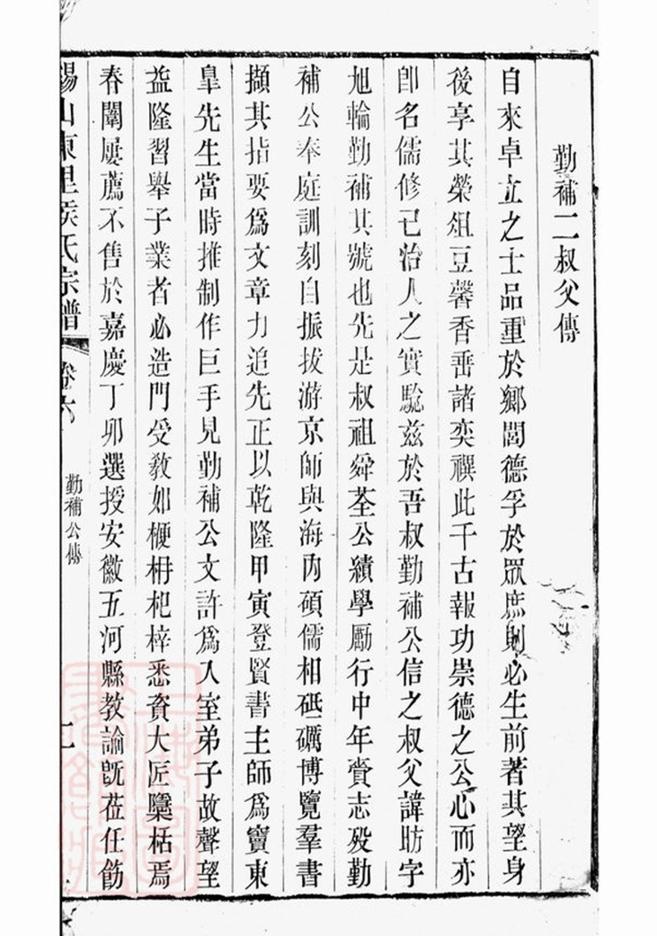 勤補二叔父傳
自來卓立之士品重於鄉閭德孚於眾庶則必生前著其望身
後享其榮俎豆馨香垂諸奕禩此千古報功崇德之公心而亦
卽名儒修己治人之實驗茲於吾叔勤補公信之叔父諱昉字
旭輪勤補其號也先是叔祖舜荃公績學勵行中年賫志歿勤
補公奉庭訓刻自振拔游京師與海內碩儒相砥礪博覽羣書
擷其指要爲文章力追先正以乾隆甲寅登賢書主師爲竇東
臯先生當時推制作巨手見勤補公文許爲入室弟子故聲望
益隆習舉子業者必造門受敎如梗枏杞梓悉資大匠櫽栝焉
春闈屢薦不售於嘉慶丁卯選授安徽五河縣教諭旣莅任飭
錫山東里侯氏宗譜
卷六
勤補公傳
二